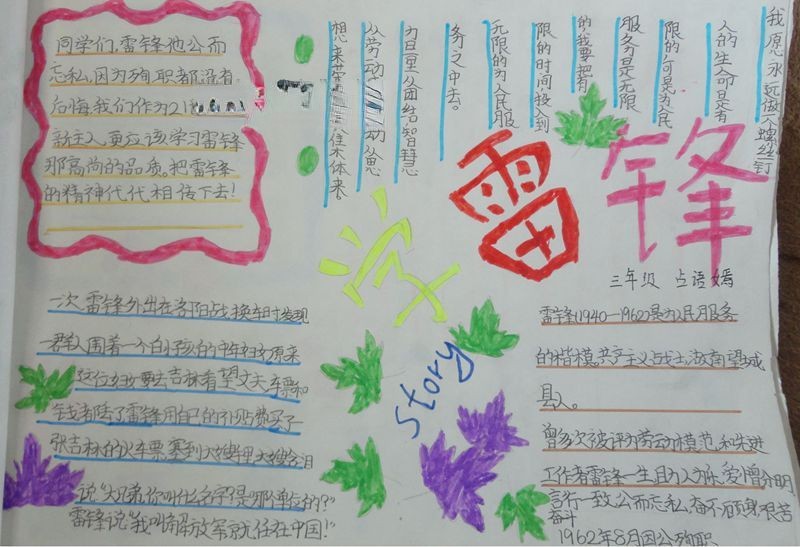 同学们,雷锋他公而
忘私,因为殉职都没有
后悔,我们作为21
新主人,更应该学习雷锋
那高尚的品质。把雷锋
的精神代代相传下去!
我愿永远做个螺丝钉
人的生命是有
限的可是为人民
服务为是无限
的,我要把有
限的时间,投入到
无限的为人民服
务之中去。
力量从团结智慧
从劳动 动从思
想来荣 从集体来
学雷锋
三年级 占语嫣
story
一次雷锋外出在沈阳战换车时发现
一群人围着一个白小孩的中年妇女原来
这位妇女要去吉林看望丈夫车票和
钱都丢了雷锋用自己的补贴费买了一
张吉林的火车票塞到大嫂手里大嫂含泪
说“大兄弟你叫什么名字,是那单位的?”
雷锋说“我叫解放军就住在中国!”
雷锋(1940—1962)是为人民服务
的楷模。共产主义战士,湖南望城
县人。
曾多次被评为劳动模范,和先进
工作者雷锋一生且为人 爱憎分明
言行一致公而忘私奋不顾身艰苦
奋斗
1962年8月因公殉职